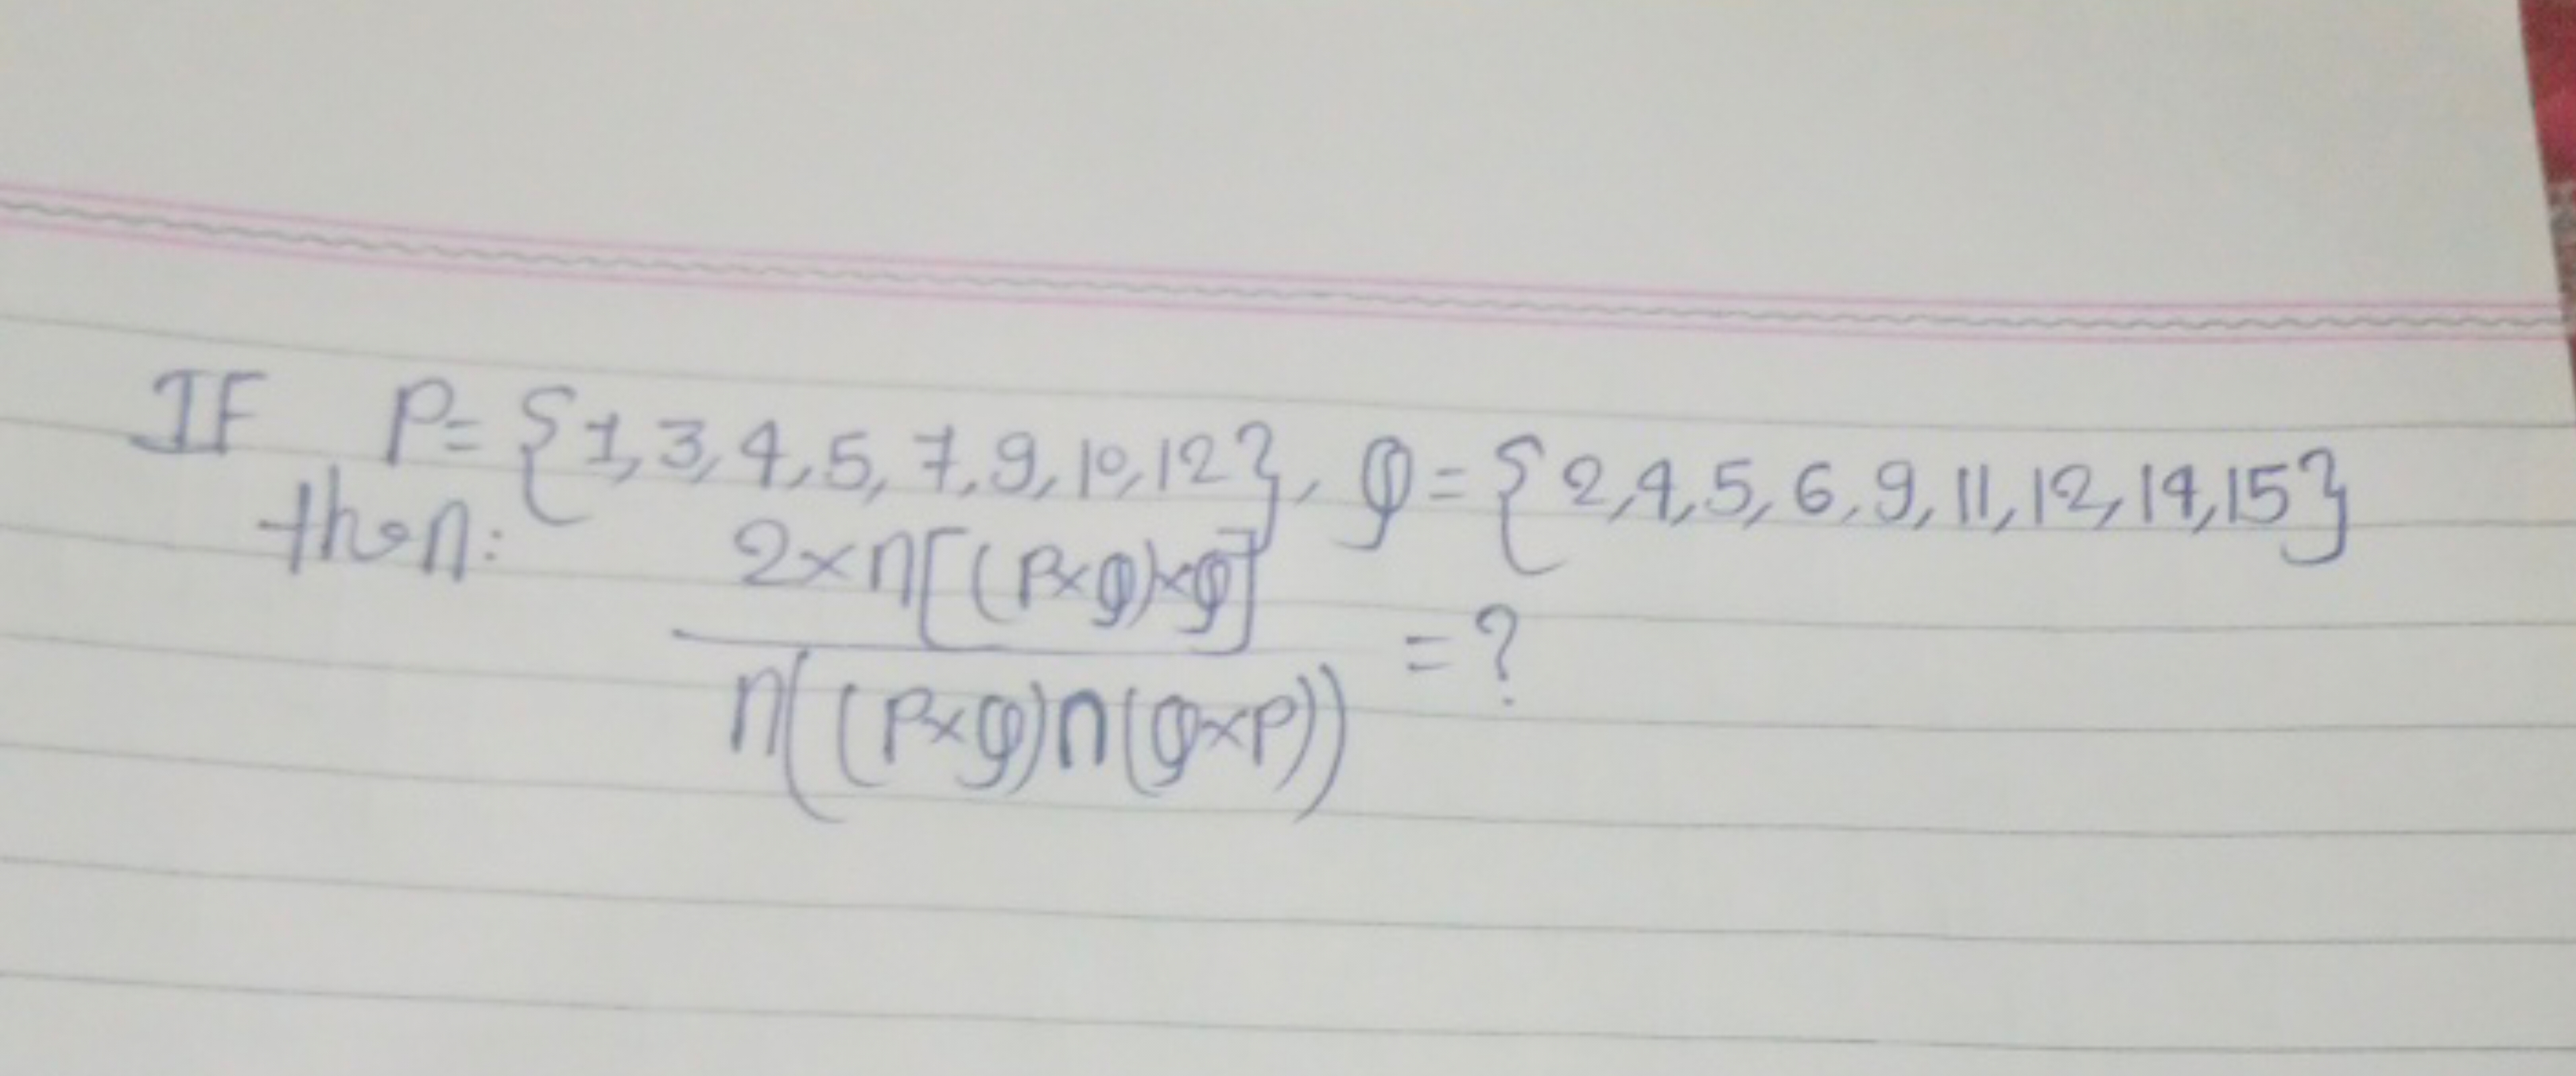 IF P= {1,3,4,5,7,9,10,12}, Q = {2,4,5,6,9,11,12,14,15}
then: 2×n[(P×Q)×Q]
n((P×Q)∩(Q×P)) = ?